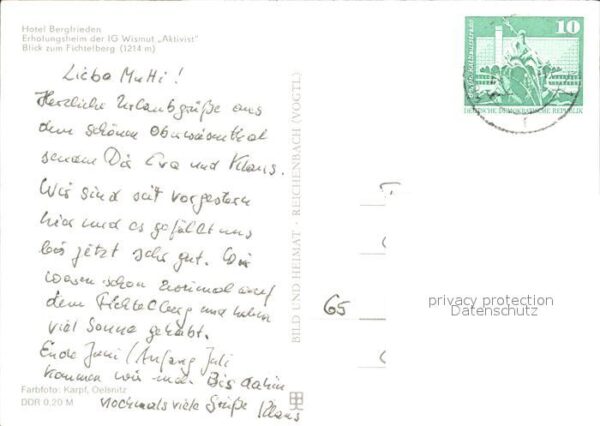 Hotel Bergfrieden
Erholungsheim der IG Wismut „Aktivist"
Blick zum Fichtelberg (1214 m)
10
DEUTSCHE DEMOKRATISCHE REPUBLIK
Liebe Mutti!
Herzliche Urlaubsgrüße aus
dem schönen Oberwiesenthal
senden Dir Eva und Klaus.
Wir sind seit vorgestern
hier und es gefällt uns
bis jetzt sehr gut. Wir
waren schon zweimal auf
dem Fichtelberg und haben
viel Sonne gehabt.
Ende Juni / Anfang Juli
kommen wir mal. Bis dahin
nochmals viele Grüße Klaus
Farbfoto: Karpf, Oelsnitz
DDR 0,20 M
BILD UND HEIMAT · REICHENBACH (VOGTL)
65
privacy protection
Datenschutz